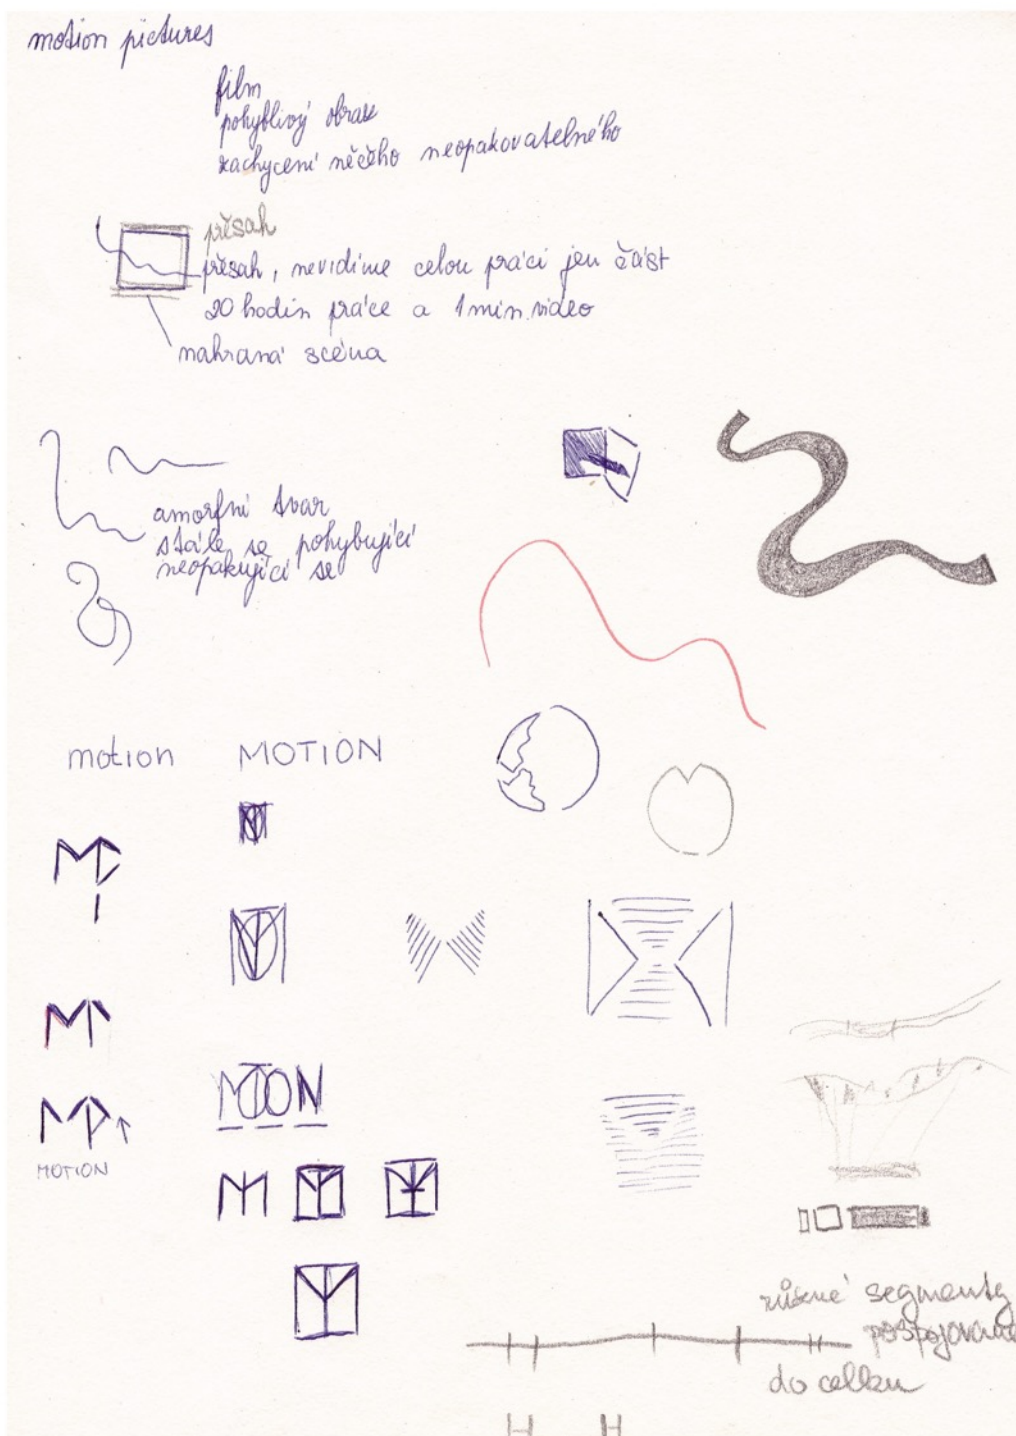 motion pictures
film
pohyblivý obraz
zachycení něčeho neopakovatelného
přesah
přesah, nevidíme celou práci jen část
20 hodin práce a 1 min. video
nahraná scéna
amorfní tvar
stále se pohybující
neopakující se
motion MOTION
MOTION
MOTION
různé segmenty
pospojované
do celku